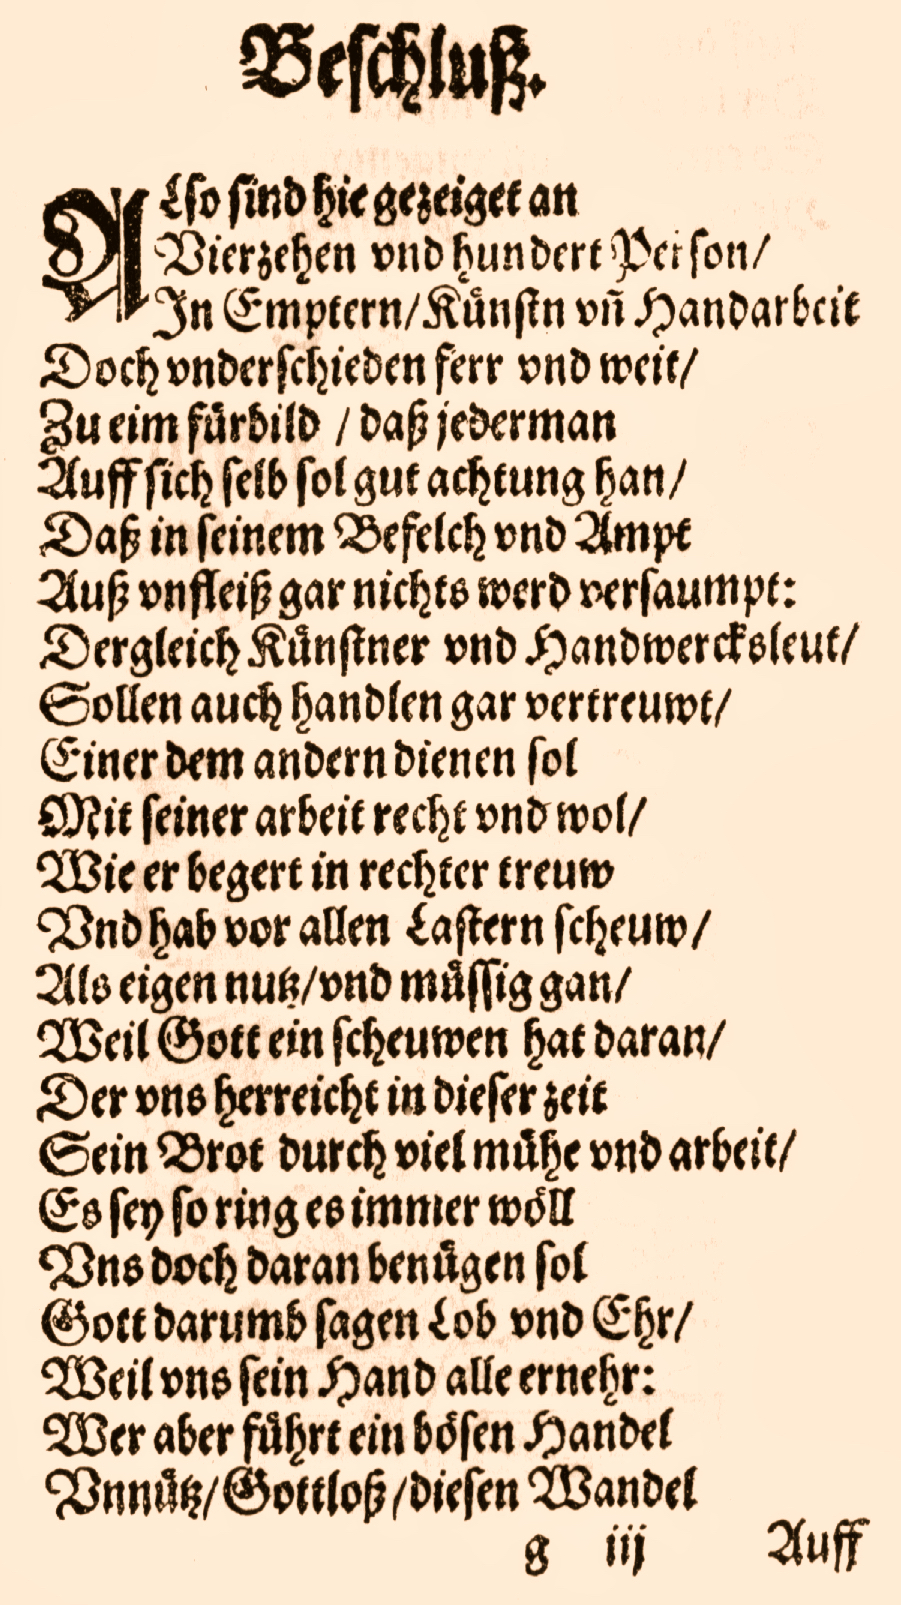 Beschluß.
ALso sind hie gezeiget an
Vierzehen vnd hundert Person/
In Emptern/Kuͤnstn vñ Handarbeit
Doch vnderschieden ferr vnd weit/
Zu eim fuͤrbild / daß jederman
Auff sich selb sol gut achtung han/
Daß in seinem Befelch vnd Ampt
Auß vnfleiß gar nichts werd versaumpt:
Dergleich Kuͤnstner vnd Handwercksleut/
Sollen auch handlen gar vertreuwt/
Einer dem andern dienen sol
Mit seiner arbeit recht vnd wol/
Wie er begert in rechter treuw
Vnd hab vor allen Lastern scheuw/
Als eigen nutz/vnd muͤssig gan/
Weil Gott ein scheuwen hat daran/
Der vns herreicht in dieser zeit
Sein Brot durch viel muͤhe vnd arbeit/
Es sey so ring es immer woͤll
Vns doch daran benuͤgen sol
Gott darumb sagen Lob vnd Ehr/
Weil vns sein Hand alle ernehr:
Wer aber fuͤhrt ein boͤsen Handel
Vnnuͤtz/Gottloß/diesen Wandel
g iij Auff